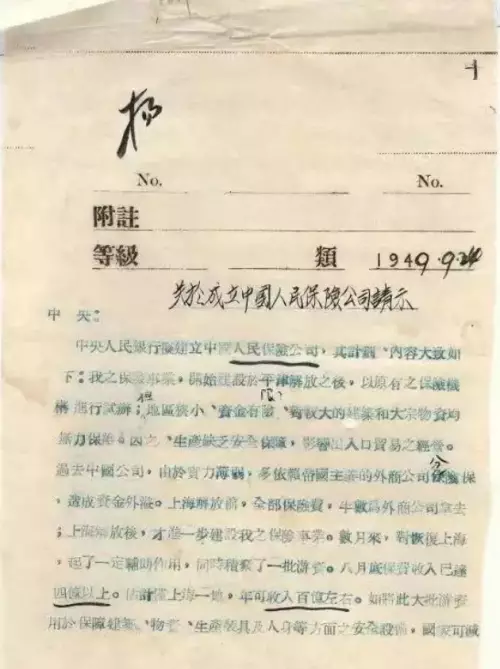 No. No.
附註
等級 類 1949.9.24
关於成立中國人民保險公司請示
中央:
中央人民銀行擬建立中國人民保險公司,其計劃、內容大致如
下:我之保險事業,開始建設於平津解放之後,以原有之保險機
構進行試辦;但地區狹小、資金有限、對較大的建築和大宗物資均
無力保險。因之、生產缺乏安全保障,影響出入口貿易之經營。
過去中國公司,由於資力薄弱,多依賴帝國主義的外商公司分保
,造成資金外溢。上海解放前,全部保險費,半數爲外商公司拿去
;上海解放後,才進一步建設我之保險事業。數月來,對恢復上海
,起了一定輔助作用,同時積累了一批游資。八月底保費收入已達
四億以上。估計僅上海一地,年可收入百億左右。如將此大批游資
用於保障建築、物資、生產裝具及人身等方面之安全設備,國家可減